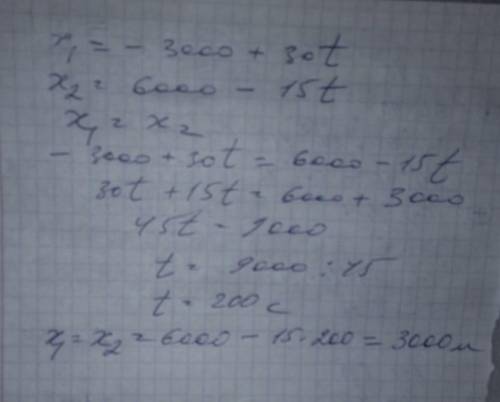 x₁ = - 3000 + 30t
x₂ = 6000 - 15t
x₁ = x₂
- 3000 + 30t = 6000 - 15t
30t + 15t = 6000 + 3000
45t = 9000
t = 9000 : 45
t = 200 с
x₁ = x₂ = 6000 - 15·200 = 3000 м